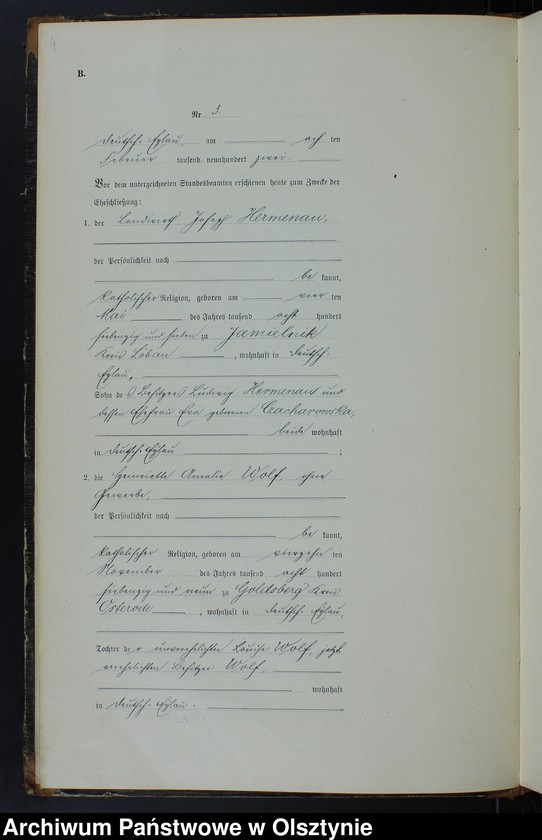 B.
Nr 3.
Deutsch. Eylau, am acht ten
Februar tausend neunhundert zwei
Vor dem unterzeichneten Standesbeamten erschienen heute zum Zwecke der
Eheschließung:
1. der Landwirth Joseph Hermenau,
der Persönlichkeit nach
be kannt,
katholischer Religion, geboren am vier ten
Mai des Jahres tausend acht hundert
siebenzig und sieben zu Jamielnik
Kreis Löbau, wohnhaft in Deutsch.
Eylau,
Sohn des Besitzers Ludwig Hermenau und
dessen Ehefrau Eva geborenen
beide wohnhaft
in Deutsch. Eylau ;
2. die Henriette Amalie Wolf, ohne
Gewerbe,
der Persönlichkeit nach
be kannt,
katholischer Religion, geboren am vierzehn ten
November des Jahres tausend acht hundert
siebenzig und neun zu Goldsberg Kreis
Osterode, wohnhaft in Deutsch. Eylau,
Tochter der unverehelichten Louise Wolf, jetzt
verehelichten Besitzer Wolf,
wohnhaft
in Deutsch. Eylau.
Archiwum Państwowe w Olsztynie